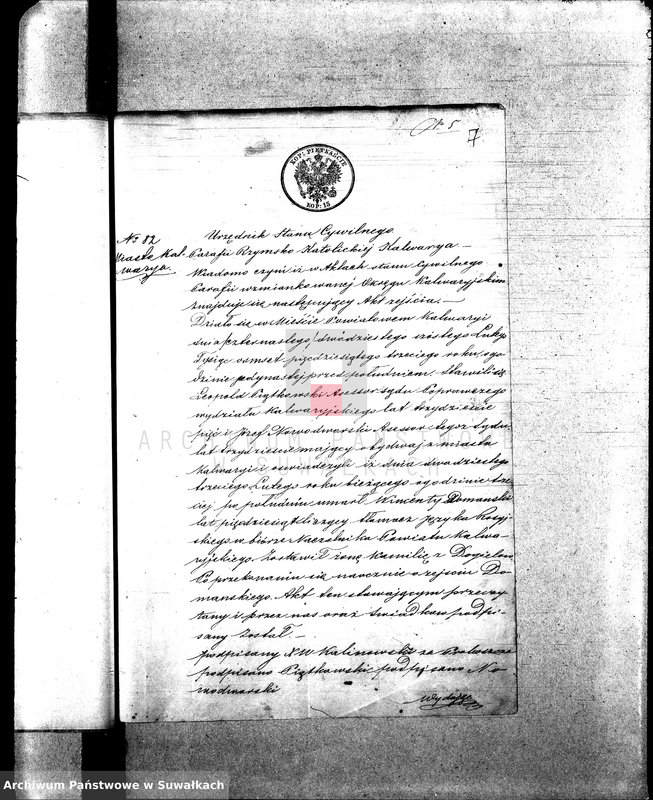 N 5
7
KOP: PIĘTNAŚCIE
KOP: 15
Urzędnik Stanu Cywilnego
№ 82
Miasto Kal-
warya.
Parafii Rzymsko Katolickiej Kalwarya. —
Wiadomo czyni iż w Aktach stanu Cywilnego
Parafii wzmiankowanej Okręgu Kalwaryjskim
znajduje się następujący Akt zejścia. —
Działo się w Mieście Powiatowem Kalwaryi
dnia czternastego / dwudziestego szóstego Lutego
Tysiąc osmset pięćdziesiątego trzeciego roku, o go
dzinie jedynastej przed południem. Stawili się
Leopold Piątkowski Assessor sądu Poprawczego
wydziału Kalwaryjskiego lat trzydzieście
pięć i Józef Nowodworski Asessor tegoż Sądu
lat trzydzieście mający obydwaj z miasta
Kalwaryi i oświadczyli iż dnia dwudziestego
trzeciego Lutego roku bieżącego o godzinie trze
ciej po południu umarł Wincenty Domański
lat pięćdziesiąt liczący tłumacz języka Rossyj
skiego w biórze Naczelnika Powiatu Kalwa-
ryjskiego. Zostawił żonę Kamillę z Dogielów
Po przekonaniu się naocznie o zejściu Do-
mańskiego. Akt ten stawającym przeczy
tany i przez nas oraz świadków podpi-
sany został. —
podpisany X W Kalinowski za
podpisano Piątkowski podpisano No
wodworski
Wydając
ARCHIWUM PAŃSTWOWE
W SUWAŁKACH
Archiwum Państwowe w Suwałkach